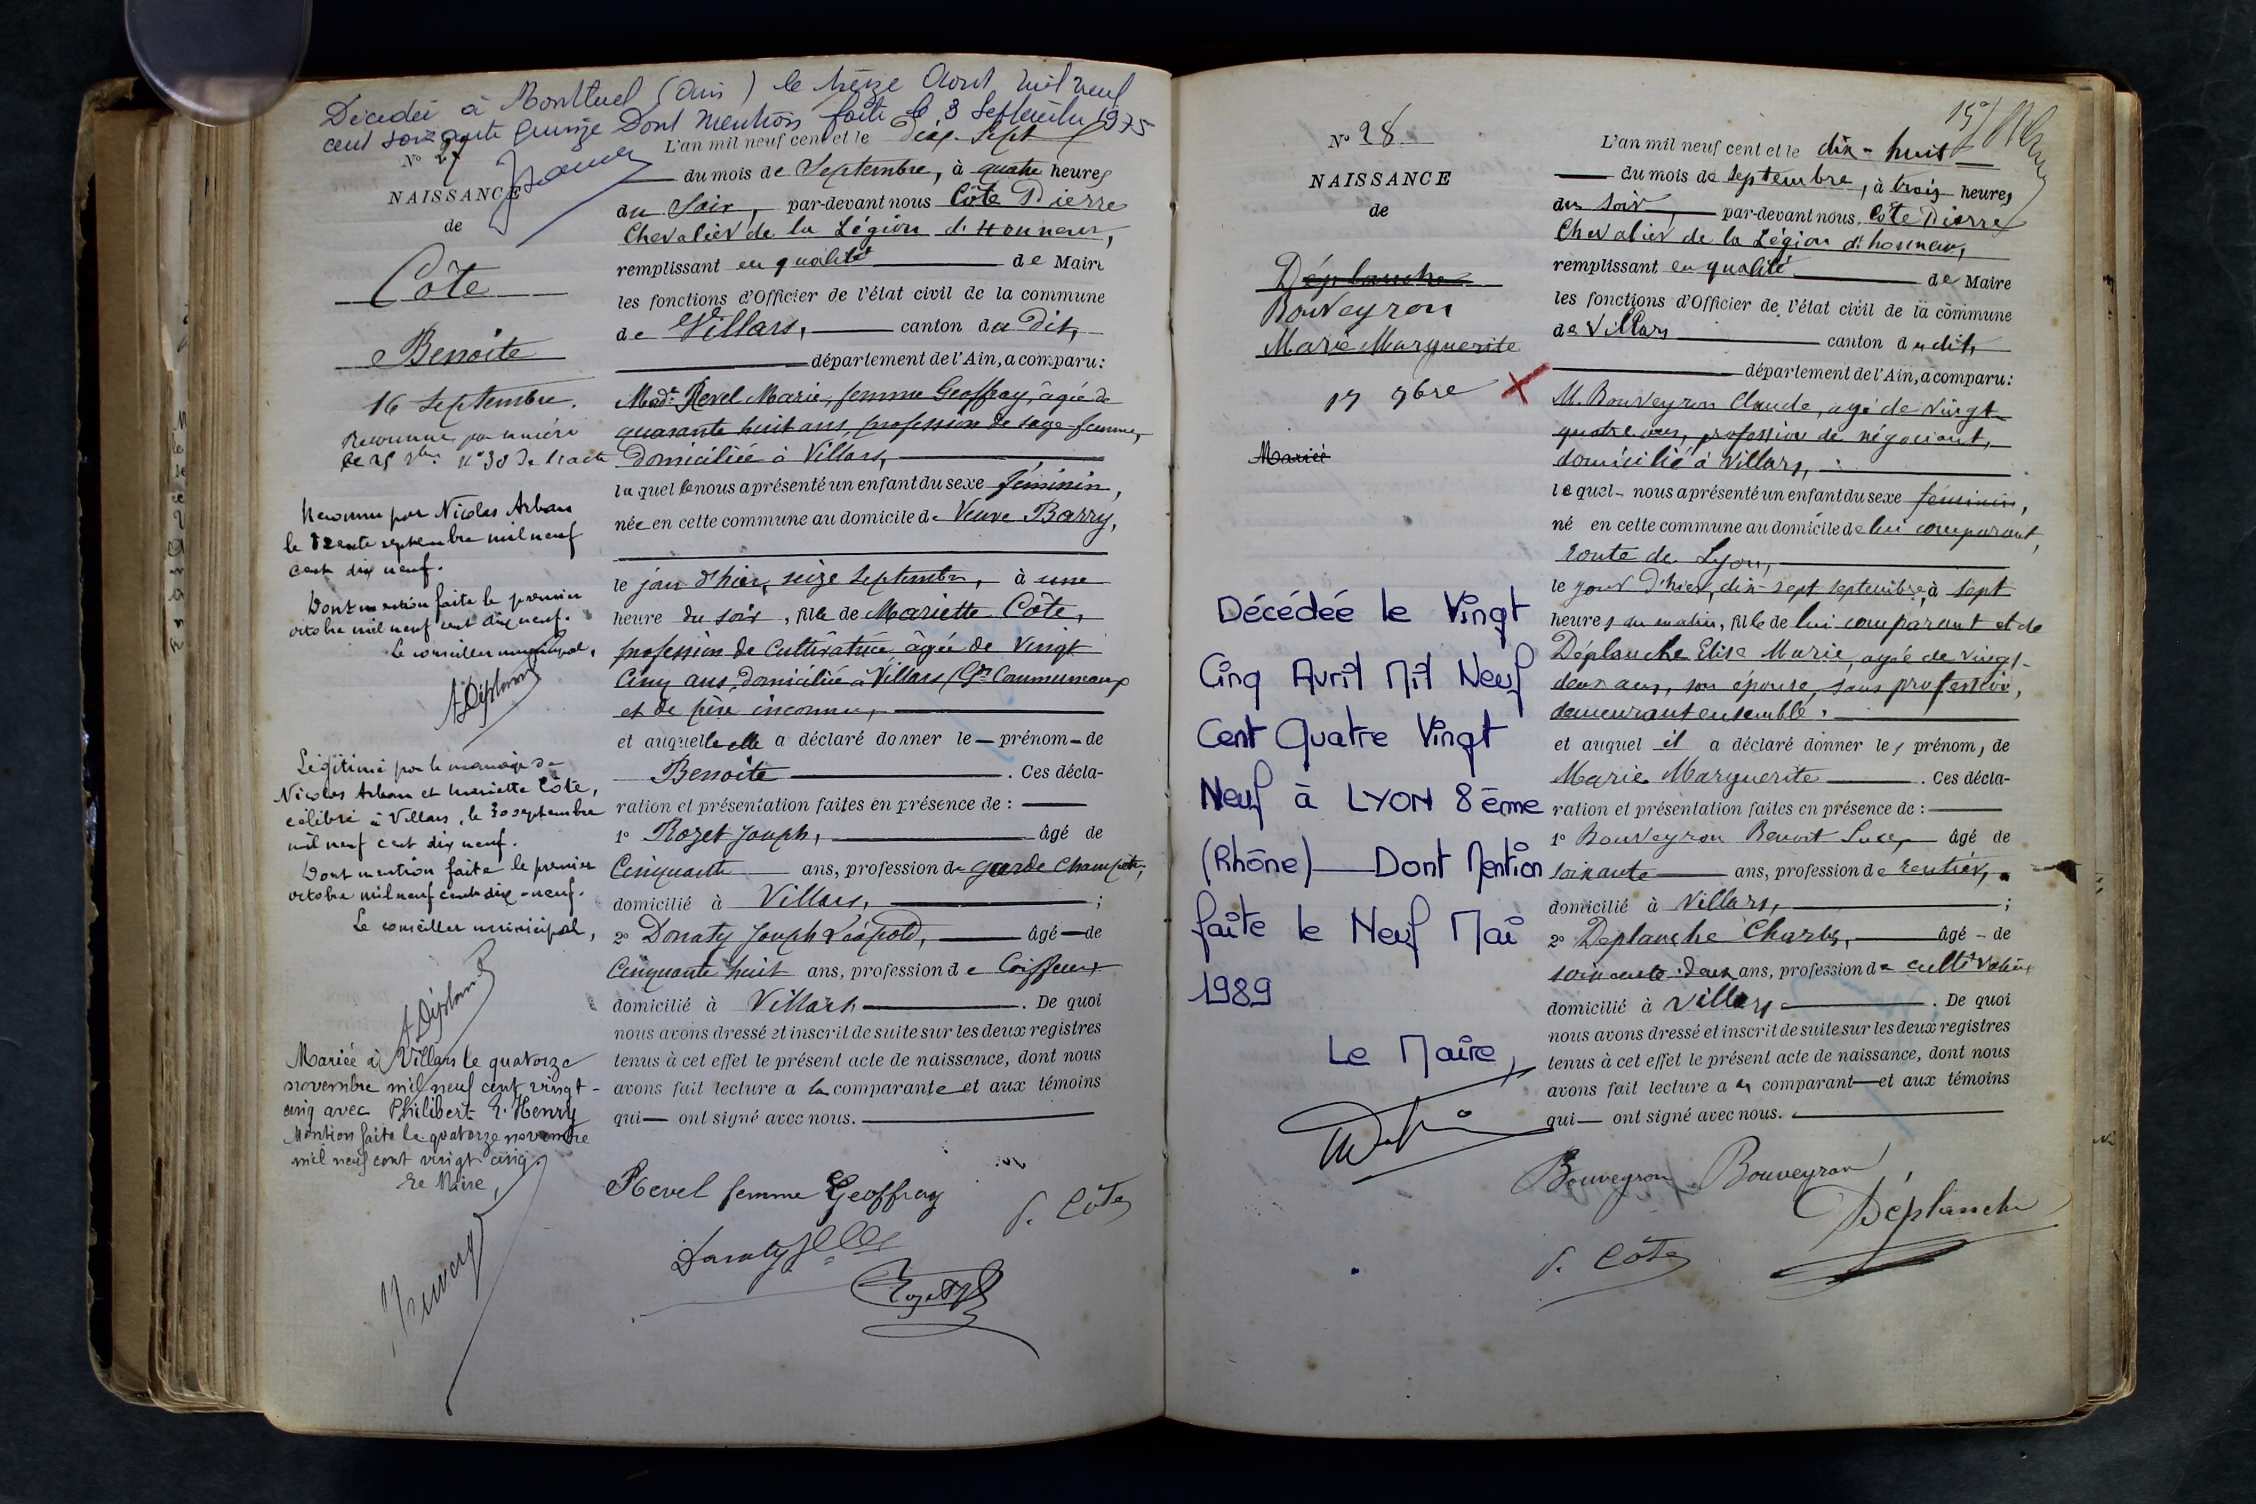 Décédée à Montluel (Ain) le treize Août mil neuf
cent soixante quinze Dont mention faite le 3 Septembre 1975
N° 27
NAISSANCE
de
Côte
Benoite
16 Septembre.
Reconnue par
N° 30 de l'acte
Reconnue par Nicolas Arban
le trente septembre mil neuf
cent dix neuf.
Dont mention faite le premier
octobre mil neuf cent dix neuf.
Le conseiller municipal,
Légitimé par le mariage de
Nicolas Arban et Mariette Côte,
célébré à Villars, le 30 septembre
mil neuf cent dix neuf.
Dont mention faite le premier
octobre mil neuf cent dix-neuf.
Le conseiller municipal,
Mariée à Villars le quatorze
novembre mil neuf cent vingt-
cinq avec Philibert E. Henry
Mention faite le quatorze novembre
mil neuf cent vingt cinq.
Le Maire,
L'an mil neuf cent et le Dix-Sept
du mois de Septembre, à quatre heures
du Soir, par-devant nous Côte Pierre
Chevalier de la Légion d'Honneur,
remplissant en qualité de Maire
les fonctions d'Officier de l'état civil de la commune
de Villars, canton du Dit,
département de l'Ain, a comparu:
Made Revel Marie, femme Geoffray, âgée de
quarante huit ans, profession de sage-femme,
domiciliée à Villars,
laquelle nous a présenté un enfant du sexe féminin,
née en cette commune au domicile de Veuve Barry,
le jour d'hier, seize Septembre, à une
heure du soir, fille de Mariette Côte,
profession de Cultivatrice âgée de Vingt
Cinq ans, domiciliée à Villars (Gds Communaux
et de père inconnu,
et auquel elle a déclaré donner le prénom de
Benoite. Ces décla-
ration et présentation faites en présence de:
1° Rozet Joseph, âgé de
Cinquante ans, profession de garde Champêtre,
domicilié à Villars,;
2° Donaty Joseph Léopold, âgé de
Cinquante huit ans, profession de Coiffeur,
domicilié à Villars. De quoi
nous avons dressé et inscrit de suite sur les deux registres
tenus à cet effet le présent acte de naissance, dont nous
avons fait lecture a la comparante et aux témoins
qui ont signé avec nous.
Revel femme Geoffray
P. Côte
Donaty
N° 28
NAISSANCE
de
Déplanche
Bouveyron
Marie Marguerite
17 7bre X
Mariée
Décédée le Vingt
Cinq Avril Mil Neuf
Cent Quatre Vingt
Neuf à LYON 8ème
(Rhône) Dont Mention
faite le Neuf Mai
1989
Le Maire,
L'an mil neuf cent et le dix-huit
du mois de Septembre, à trois heures
du soir, par-devant nous Côte Pierre
Chevalier de la Légion d'honneur,
remplissant en qualité de Maire
les fonctions d'Officier de l'état civil de la commune
de Villars canton du dit,
département de l'Ain, a comparu:
M. Bouveyron Claude, agé de vingt
quatre ans, profession de négociant,
domicilié à Villars,
lequel nous a présenté un enfant du sexe féminin,
né en cette commune au domicile de lui comparant,
route de Lyon,
le jour d'hier, dix-sept septembre, à sept
heures du matin, fille de lui comparant et de
Déplanche Elise Marie, agée de vingt-
deux ans, son épouse, sans profession,
demeurant ensemble.
et auquel il a déclaré donner les prénom, de
Marie Marguerite. Ces décla-
ration et présentation faites en présence de:
1° Bouveyron Benoit âgé de
soixante ans, profession de rentier,
domicilié à Villars,;
2° Déplanche Charles, âgé de
soixante-deux ans, profession de cultivateur
domicilié à Villars. De quoi
nous avons dressé et inscrit de suite sur les deux registres
tenus à cet effet le présent acte de naissance, dont nous
avons fait lecture a u comparant et aux témoins
qui ont signé avec nous.
Bouveyron Bouveyron
Déplanche
P. Côte